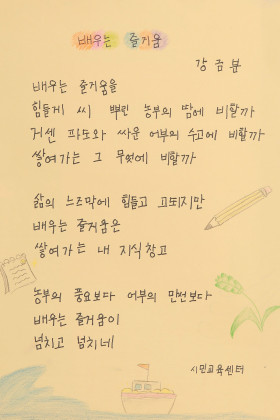 배우는 즐거움
강금분
배우는 즐거움을
힘들게 씨 뿌린 농부의 땀에 비할까
거센 파도와 싸운 어부의 수고에 비할까
쌓여가는 그 무엇에 비할까
삶의 느즈막에 힘들고 고되지만
배우는 즐거움은
쌓여가는 내 지식창고
농부의 풍요보다 어부의 만선보다
배우는 즐거움이
넘치고 넘치네
시민교육센터